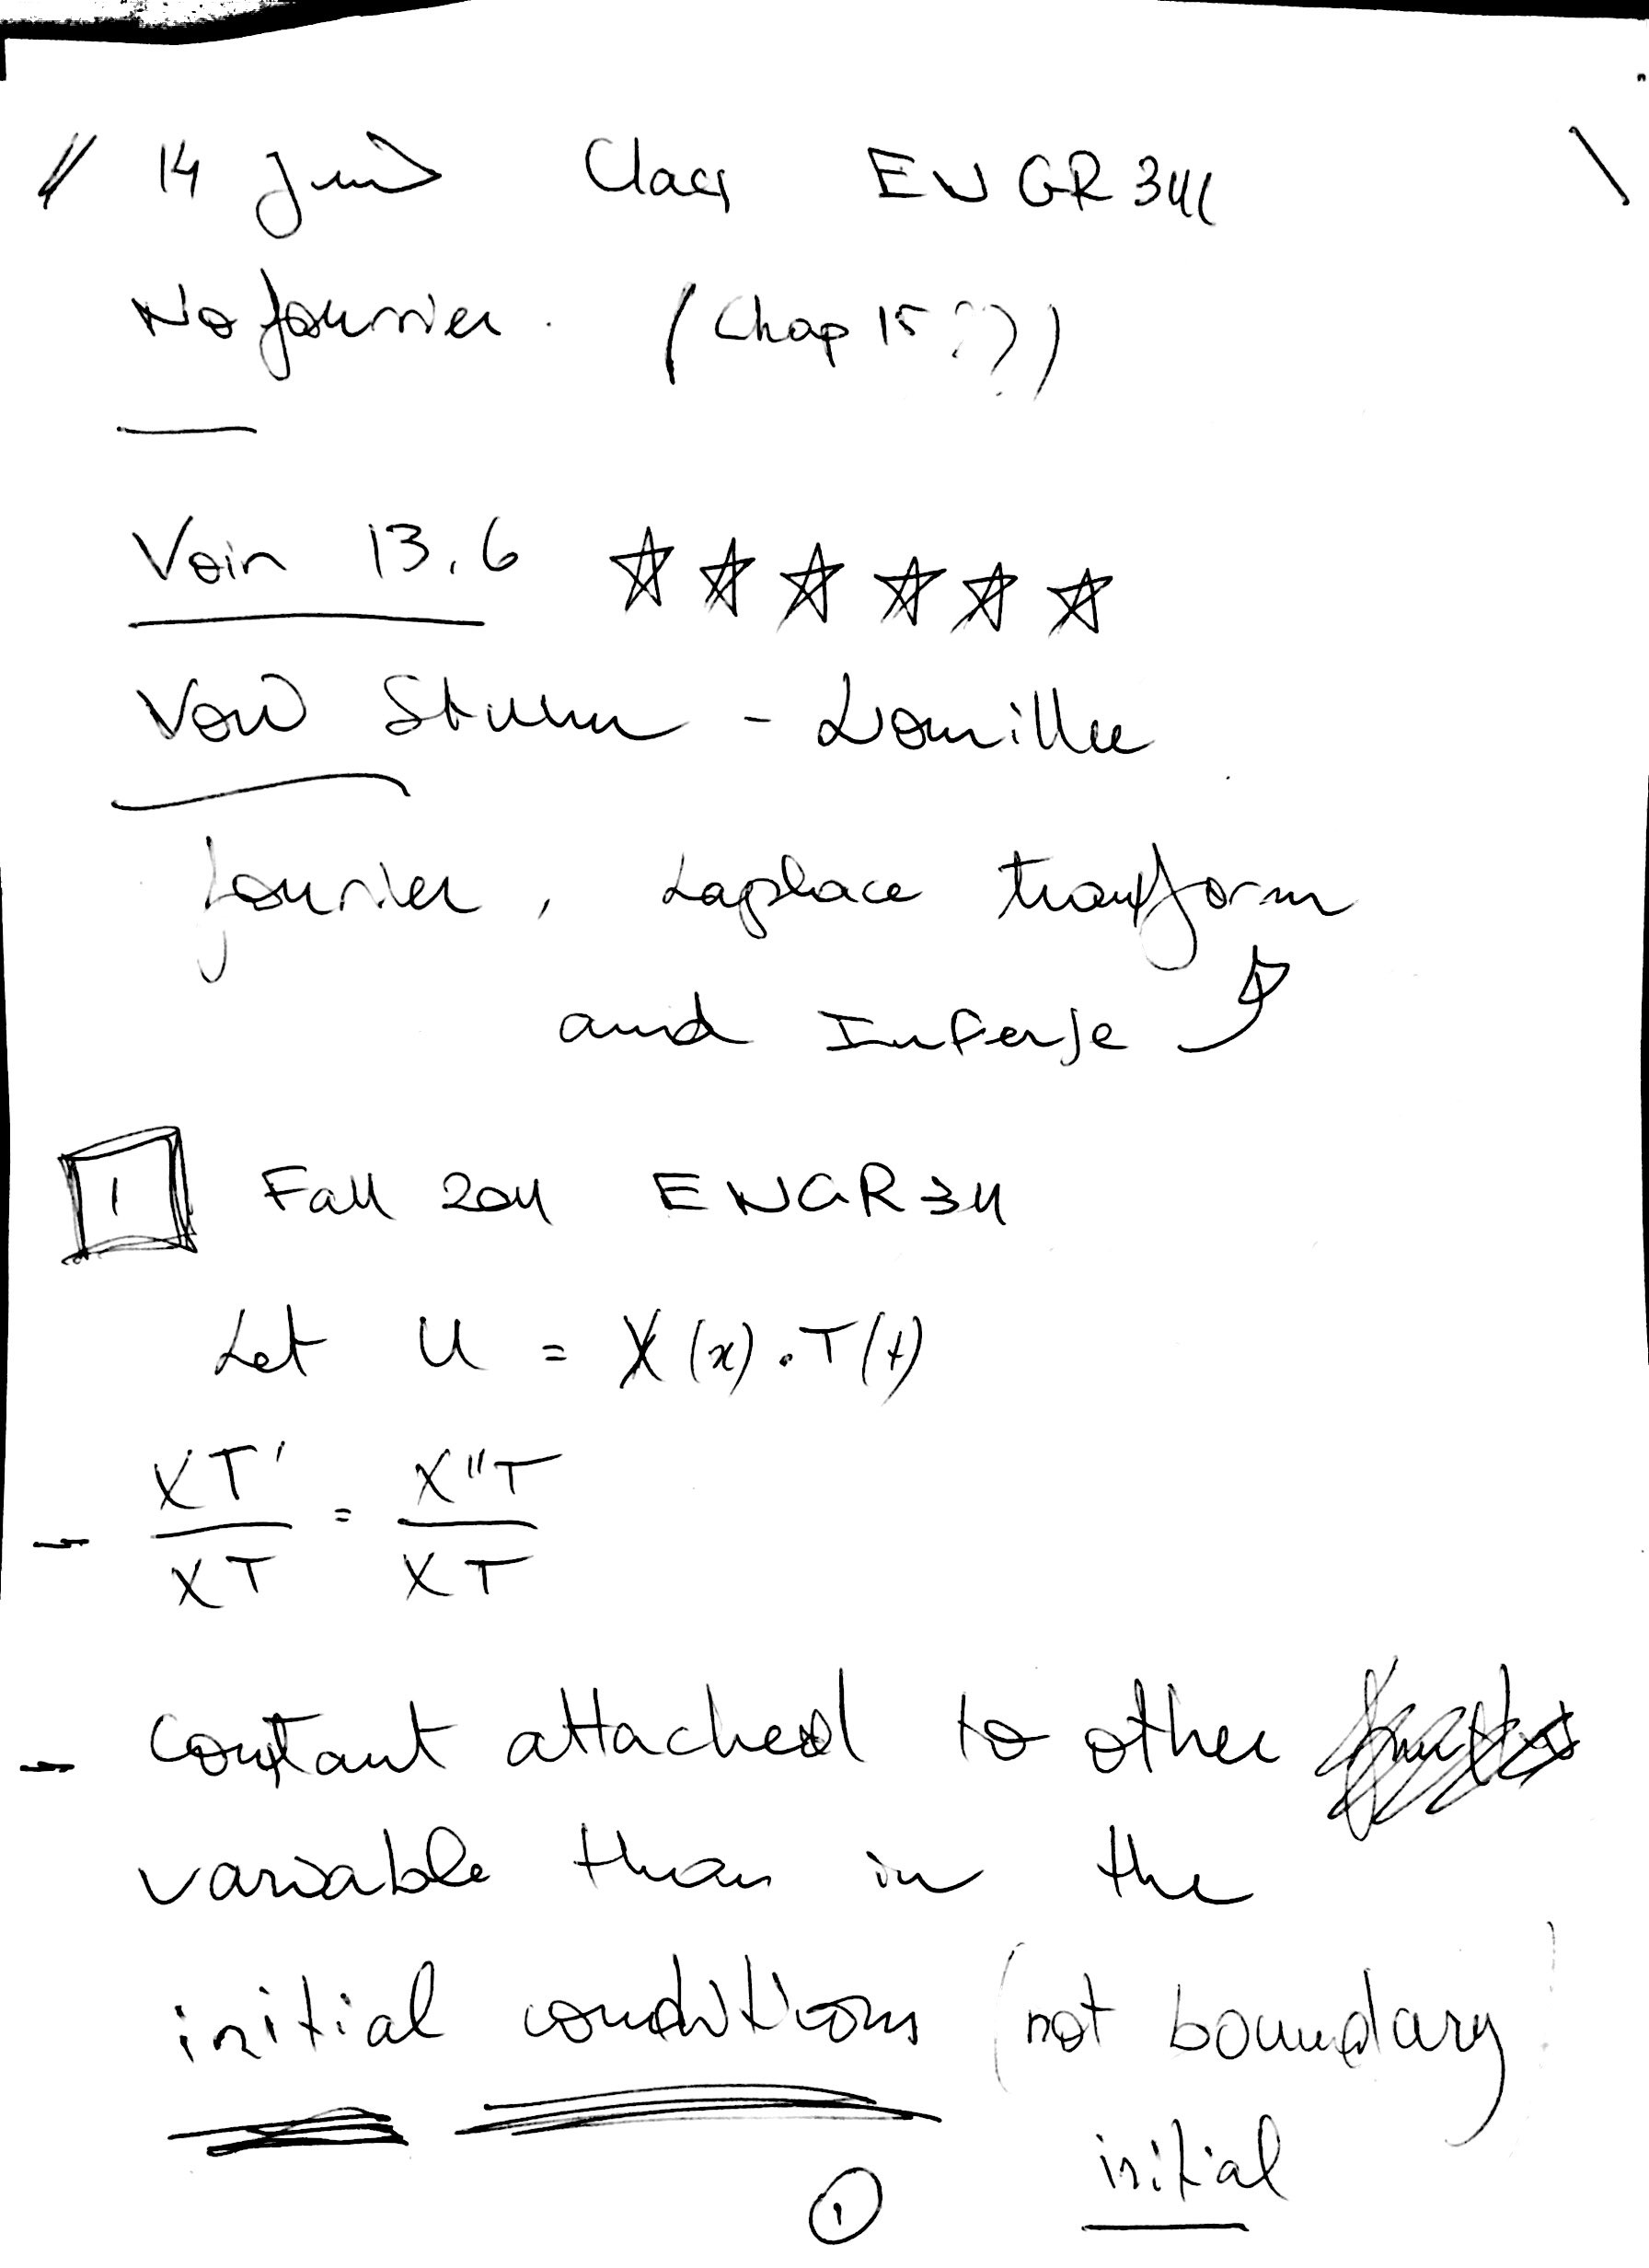 // 14 Juin Class ENGR 311 \
No fourrier. (Chap 15 ??)
Voir 13.6 ☆☆☆☆☆☆
Voir Sturm - Liouville
fourrier, Laplace transform
and Inverse
1 Fall 2011 ENGR 311
Let U = X(x) . T(t)
- XT'/XT = X"T/XT
- constant attached to other
variable than in the
initial conditions (not boundary)
initial
1